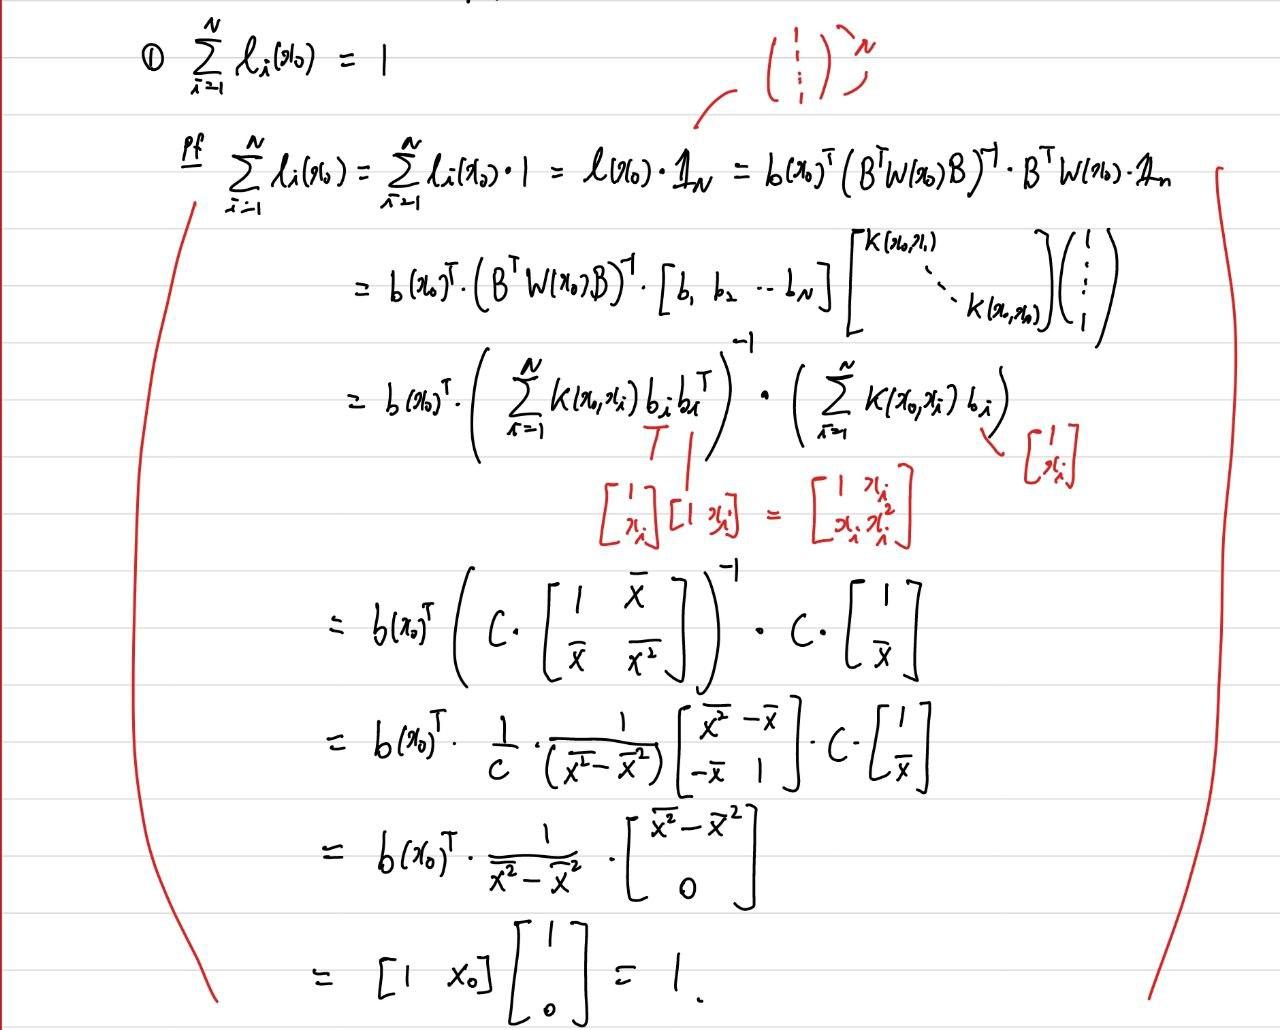 ① $\sum_{i=1}^{N} l_i(x_0) = 1$
$\begin{pmatrix} 1 \\ \vdots \\ 1 \end{pmatrix}$ N
pf $\sum_{i=1}^{N} l_i(x_0) = \sum_{i=1}^{N} l_i(x_0) \cdot 1 = l(x_0) \cdot \mathbb{1}_N = b(x_0)^T (B^T W(x_0) B)^{-1} \cdot B^T W(x_0) \cdot \mathbb{1}_n$
$= b(x_0)^T \cdot (B^T W(x_0) B)^{-1} \cdot [b_1 \; b_2 \; \cdots \; b_N] \begin{bmatrix} K(x_0, x_1) & & \\ & \ddots & \\ & & K(x_0, x_N) \end{bmatrix} \begin{pmatrix} 1 \\ \vdots \\ 1 \end{pmatrix}$
$= b(x_0)^T \cdot \left( \sum_{i=1}^{N} K(x_0, x_i) b_i b_i^T \right)^{-1} \cdot \left( \sum_{i=1}^{N} K(x_0, x_i) b_i \right)$
$\begin{bmatrix} 1 \\ x_i \end{bmatrix}$
$\begin{bmatrix} 1 \\ x_i \end{bmatrix} [1 \; x_i] = \begin{bmatrix} 1 & x_i \\ x_i & x_i^2 \end{bmatrix}$
$= b(x_0)^T \left( C \cdot \begin{bmatrix} 1 & \overline{x} \\ \overline{x} & \overline{x^2} \end{bmatrix} \right)^{-1} \cdot C \cdot \begin{bmatrix} 1 \\ \overline{x} \end{bmatrix}$
$= b(x_0)^T \cdot \frac{1}{C} \cdot \frac{1}{(\overline{x^2} - \overline{x}^2)} \begin{bmatrix} \overline{x^2} & -\overline{x} \\ -\overline{x} & 1 \end{bmatrix} \cdot C \cdot \begin{bmatrix} 1 \\ \overline{x} \end{bmatrix}$
$= b(x_0)^T \cdot \frac{1}{\overline{x^2} - \overline{x}^2} \cdot \begin{bmatrix} \overline{x^2} - \overline{x}^2 \\ 0 \end{bmatrix}$
$= [1 \; x_0] \begin{bmatrix} 1 \\ 0 \end{bmatrix} = 1.$